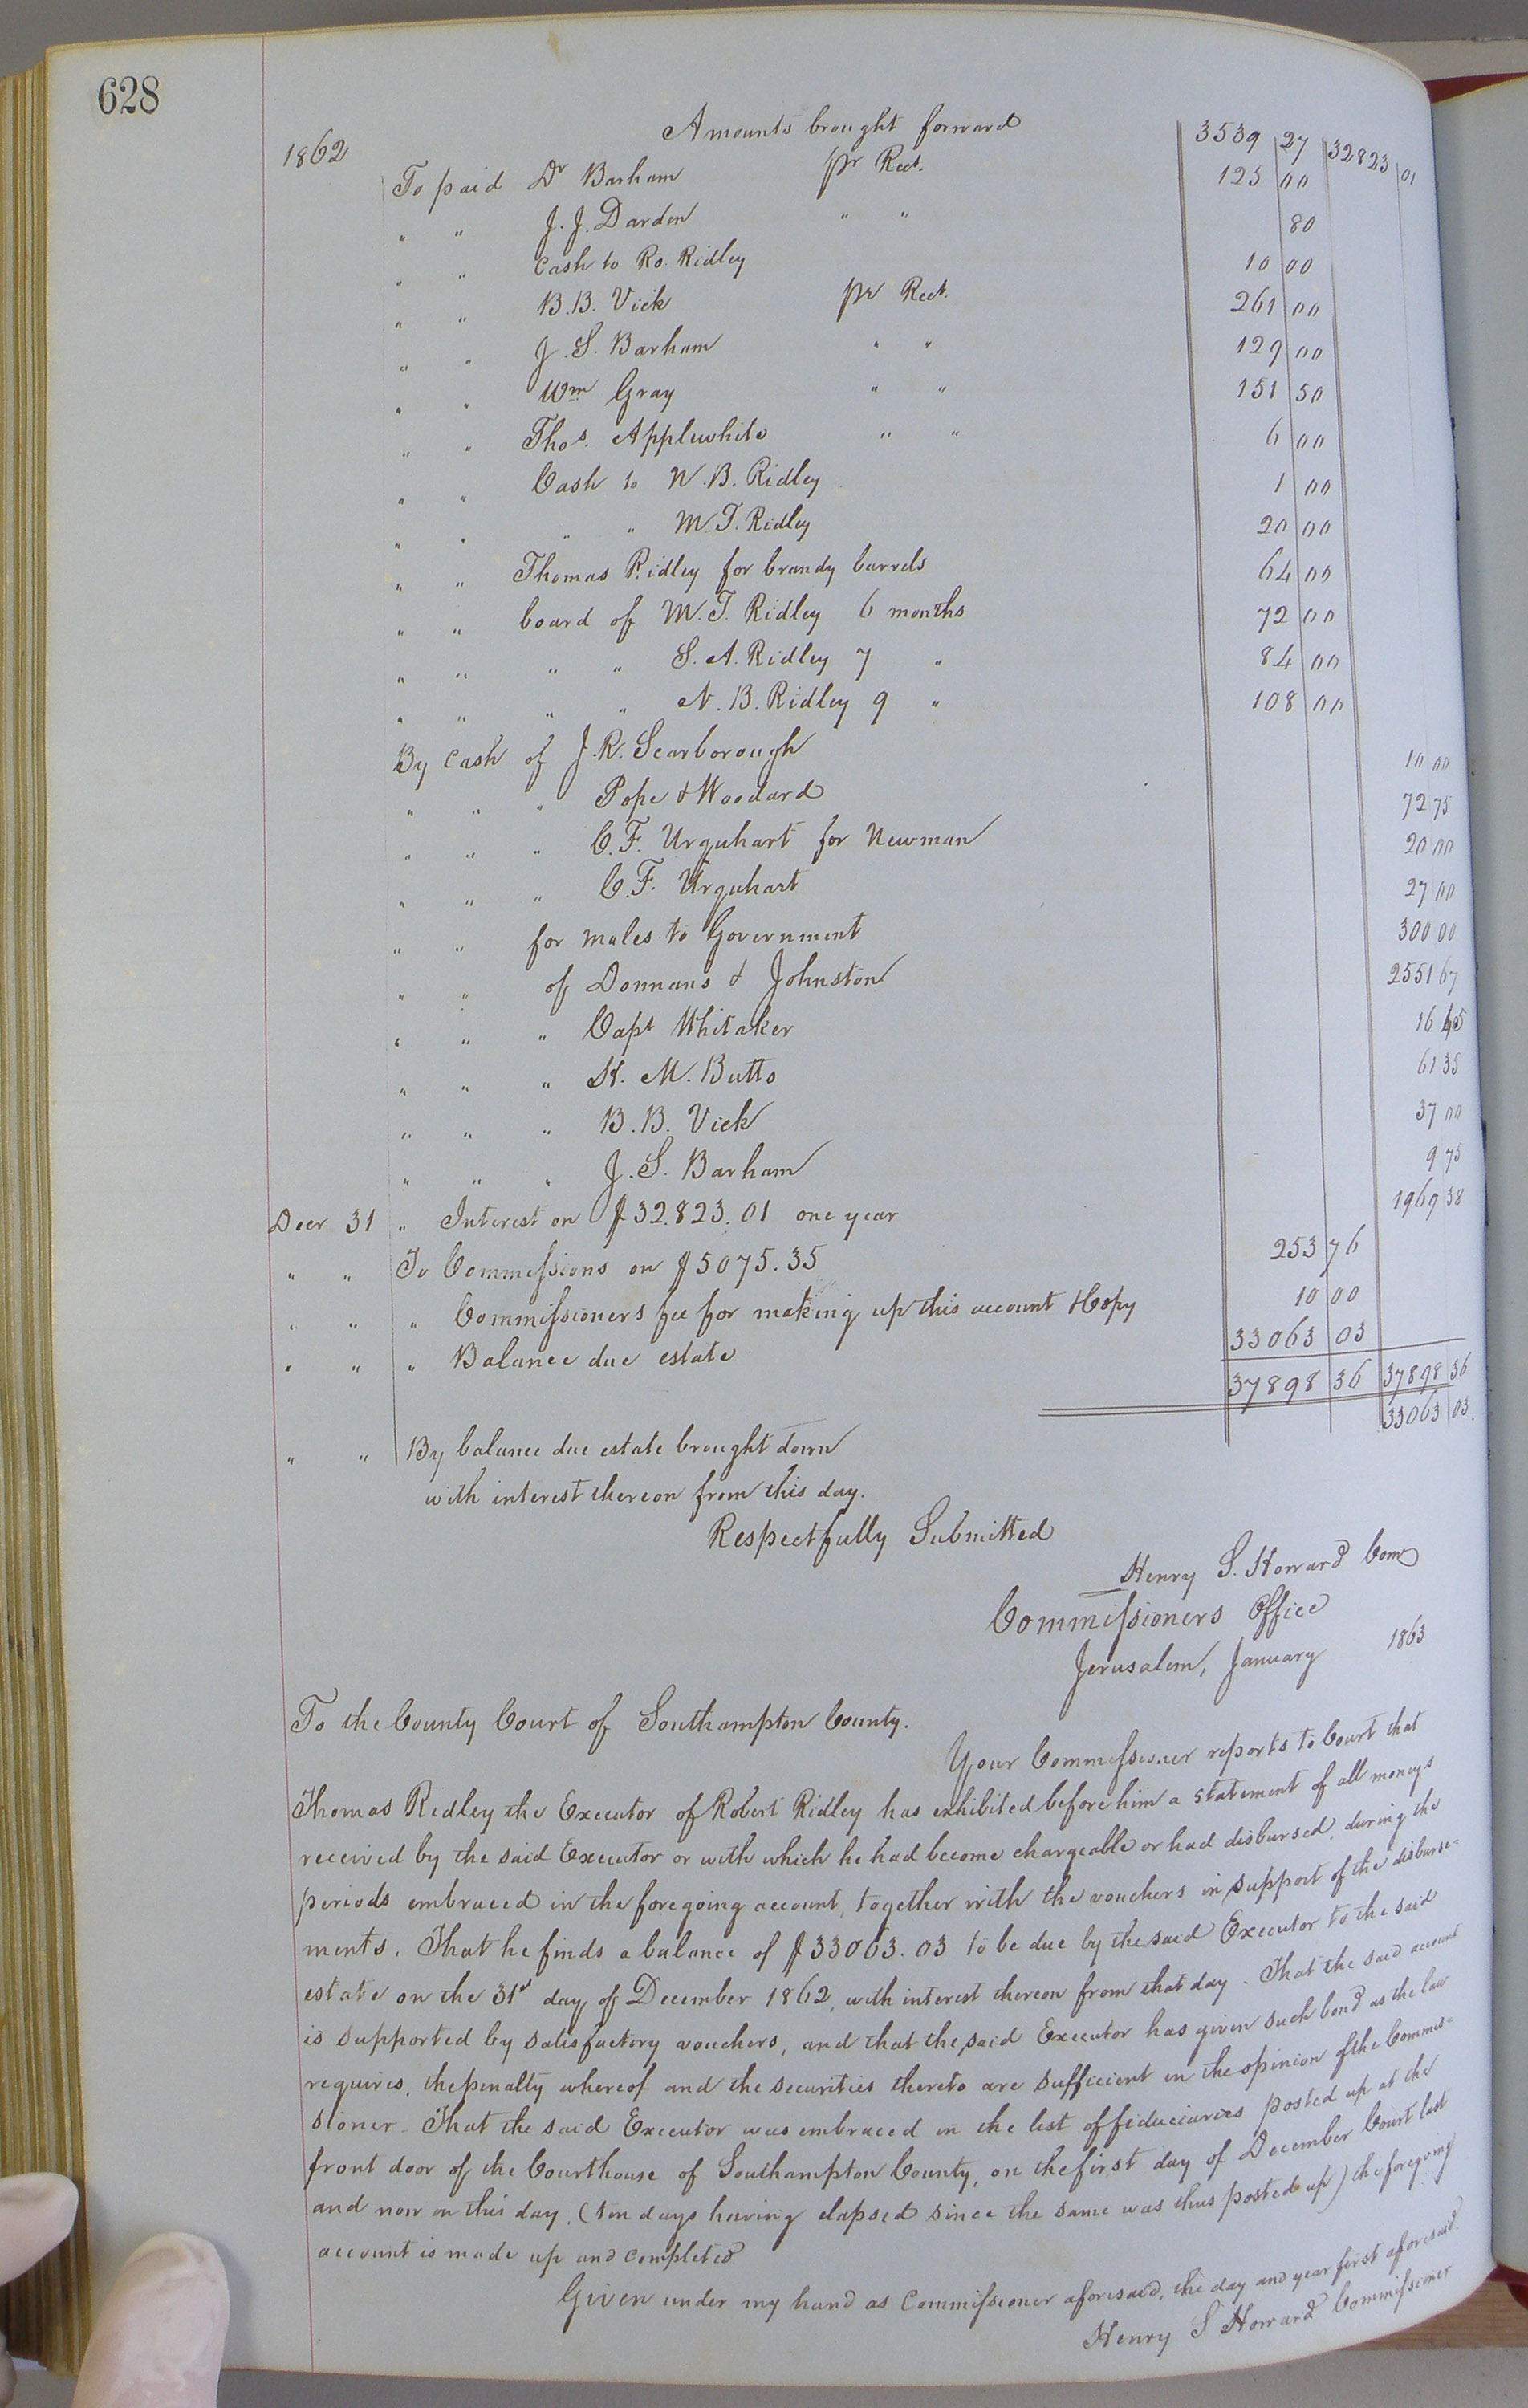 628
Amounts brought forward 3539 27 32823 01
1862 To paid Dr Barham pr Rect. 125 00
" " J. J. Darden " " 80
" " Cash to Ro. Ridley 10 00
" " B. B. Vick pr Rect. 261 00
" " J. S. Barham " " 129 00
" " Wm Gray " " 151 50
" " Thos. Applewhite " " 6 00
" " Cash to N. B. Ridley 1 00
" " " " M. T. Ridley 20 00
" " Thomas Ridley for brandy barrels 64 00
" " board of M. T. Ridley 6 months 72 00
" " " " S. A. Ridley 7 " 84 00
" " " " N. B. Ridley 9 " 108 00
By Cash of J. R. Scarborough 10 00
" " " Pope & Woodard 72 75
" " " C. F. Urquhart for Newman 20 00
" " " C. F. Urquhart 27 00
" " for mules to Government 300 00
" " of Donnans & Johnston 2551 67
" " " Capt Whitaker 16 45
" " " H. M. Butts 61 35
" " " B. B. Vick 37 00
" " " J. S. Barham 9 75
Decr 31 " Interest on $32.823.01 one year 1969 38
" " To Commissions on $5075.35 253 76
" " " Commissioners fee for making up this account & Copy 10 00
" " " Balance due estate 33063 03
37898 36 37898 36
" " By balance due estate brought down 33063 03.
with interest thereon from this day.
Respectfully Submitted
Henry S. Howard Com
Commissioners Office
Jerusalem, January 1863
To the County Court of Southampton County.
Your Commissioner reports to Court that
Thomas Ridley the Executor of Robert Ridley has exhibited before him a statement of all moneys
received by the said Executor or with which he had become chargeable or had disbursed, during the
periods embraced in the foregoing account, together with the vouchers in support of the disburse-
ments. That he finds a balance of $33063.03 to be due by the said Executor to the said
estate on the 31st day of December 1862, with interest thereon from that day - That the said account
is supported by satisfactory vouchers, and that the said Executor has given such bond as the law
requires, the penalty whereof and the securities thereto are sufficient in the opinion of the Commis-
sioner - That the said Executor was embraced in the list of fiduciaries posted up at the
front door of the Courthouse of Southampton County, on the first day of December Court last
and now on this day, (ten days having elapsed since the same was thus posted up) the foregoing
account is made up and completed
Given under my hand as Commissioner aforesaid, the day and year first aforesaid.
Henry S Howard Commissioner